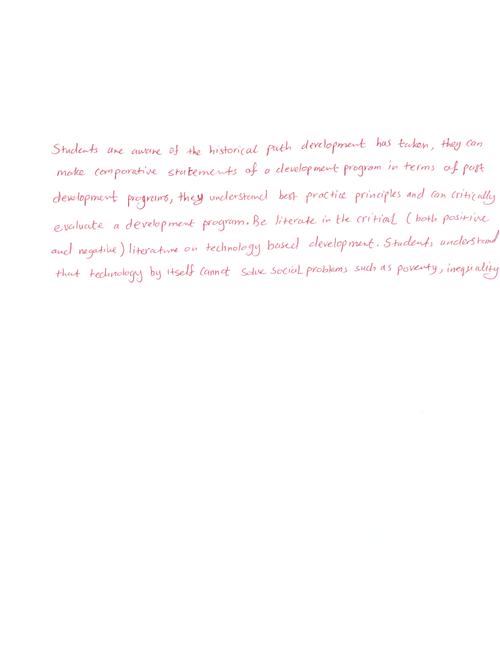 Students are aware of the historical path development has taken, they can
make comparative statements of a development program in terms of past
development programs, they understand best practice principles and can critically
evaluate a development program. Be literate in the critical (both positive
and negative) literature on technology based development. Students understand
that technology by itself cannot solve social problems such as poverty, inequality